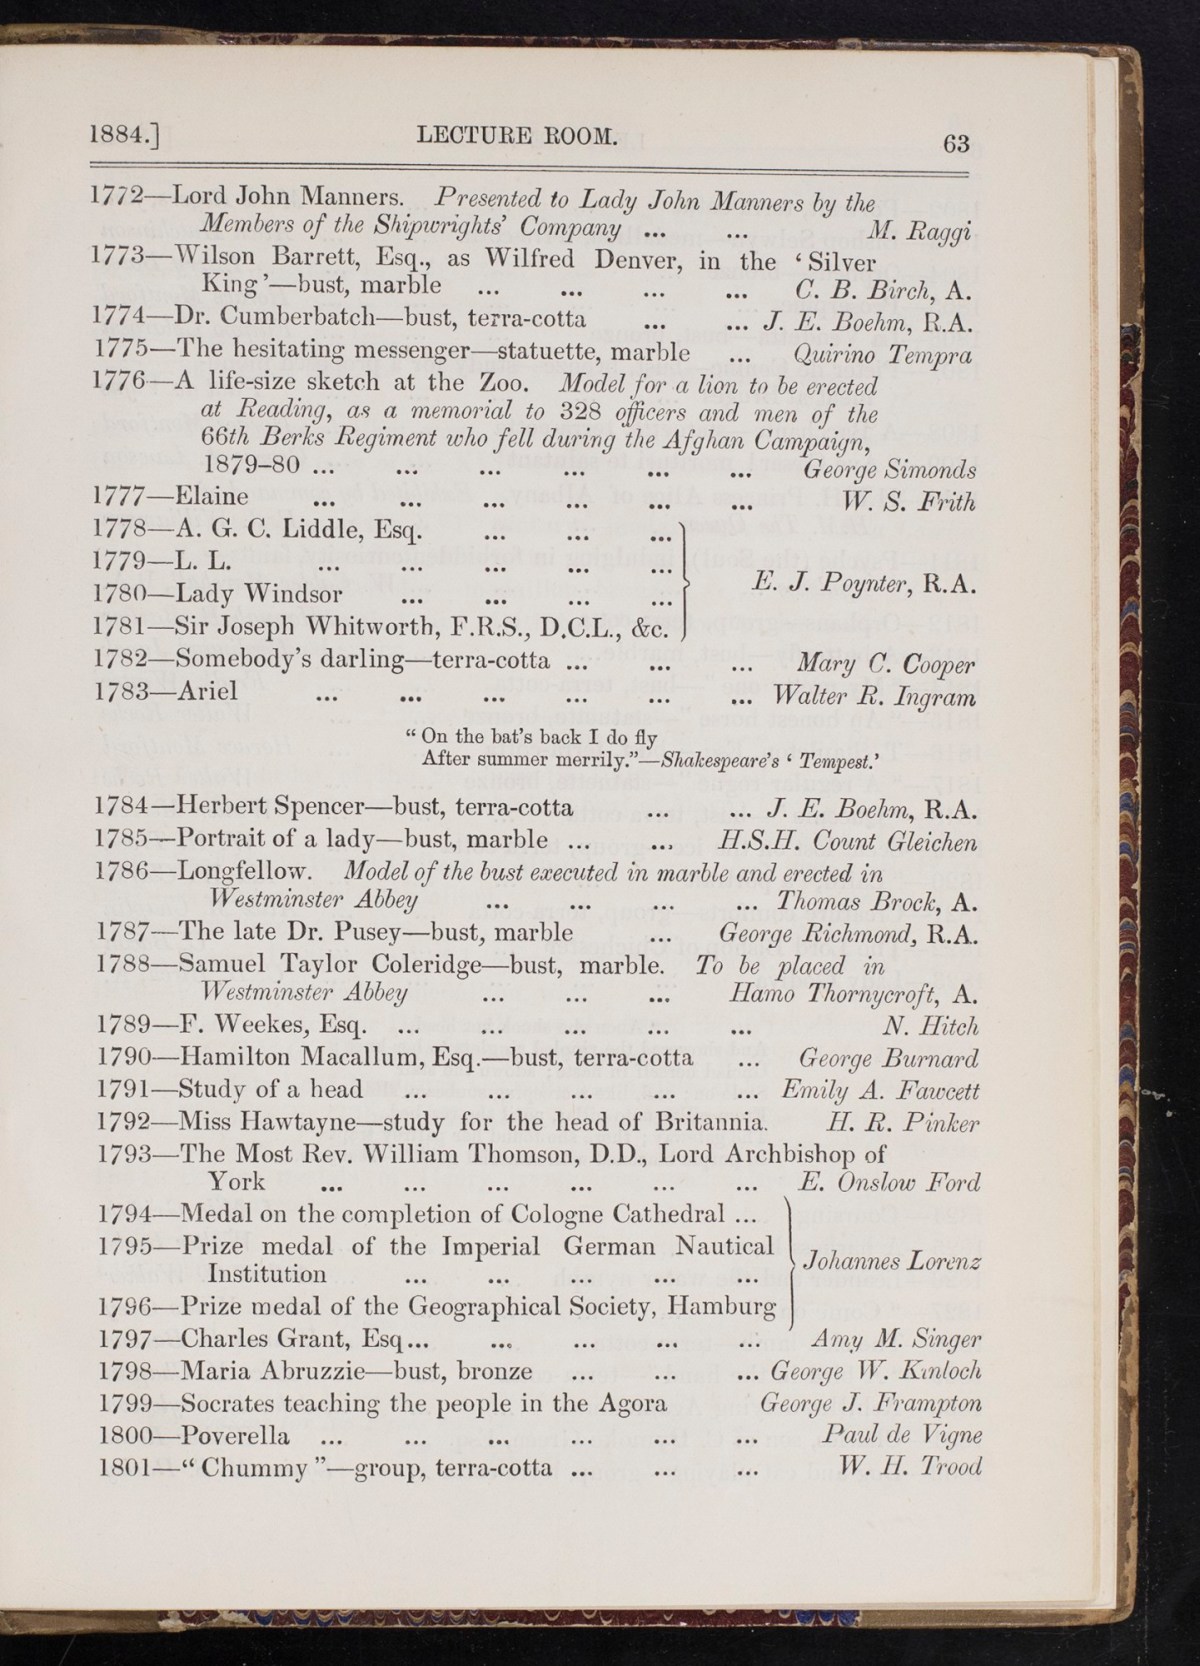 1884.] LECTURE ROOM. 63
1772—Lord John Manners. Presented to Lady John Manners by the
Members of the Shipwrights' Company ... ... M. Raggi
1773—Wilson Barrett, Esq., as Wilfred Denver, in the ‘Silver
King’—bust, marble ... ... ... ... C. B. Birch, A.
1774—Dr. Cumberbatch—bust, terra-cotta ... ... J. E. Boehm, R.A.
1775—The hesitating messenger—statuette, marble ... Quirino Tempra
1776—A life-size sketch at the Zoo. Model for a lion to be erected
at Reading, as a memorial to 328 officers and men of the
66th Berks Regiment who fell during the Afghan Campaign,
1879–80 ... ... ... ... ... ... George Simonds
1777—Elaine ... ... ... ... ... ... W. S. Frith
1778—A. G. C. Liddle, Esq. ... ... ...
1779—L. L. ... ... ... ... ...
1780—Lady Windsor ... ... ... ...
E. J. Poynter, R.A.
1781—Sir Joseph Whitworth, F.R.S., D.C.L., &c.
1782—Somebody's darling—terra-cotta ... ... ... Mary C. Cooper
1783—Ariel ... ... ... ... ... ... Walter R. Ingram
“On the bat's back I do fly
After summer merrily.”—Shakespeare's ‘Tempest.’
1784—Herbert Spencer—bust, terra-cotta ... ... J. E. Boehm, R.A.
1785—Portrait of a lady—bust, marble ... ... H.S.H. Count Gleichen
1786—Longfellow. Model of the bust executed in marble and erected in
Westminster Abbey ... ... ... ... Thomas Brock, A.
1787—The late Dr. Pusey—bust, marble ... George Richmond, R.A.
1788—Samuel Taylor Coleridge—bust, marble. To be placed in
Westminster Abbey ... ... ... Hamo Thornycroft, A.
1789—F. Weekes, Esq. ... ... ... ... ... N. Hitch
1790—Hamilton Macallum, Esq.—bust, terra-cotta ... George Burnard
1791—Study of a head ... ... ... ... ... Emily A. Fawcett
1792—Miss Hawtayne—study for the head of Britannia. H. R. Pinker
1793—The Most Rev. William Thomson, D.D., Lord Archbishop of
York ... ... ... ... ... ... E. Onslow Ford
1794—Medal on the completion of Cologne Cathedral ...
1795—Prize medal of the Imperial German Nautical
Johannes Lorenz
Institution ... ... ... ... ...
1796—Prize medal of the Geographical Society, Hamburg
1797—Charles Grant, Esq... ... ... ... ... Amy M. Singer
1798—Maria Abruzzie—bust, bronze ... ... ... George W. Kinloch
1799—Socrates teaching the people in the Agora George J. Frampton
1800—Poverella ... ... ... ... ... ... Paul de Vigne
1801—“Chummy”—group, terra-cotta ... ... ... W. H. Trood